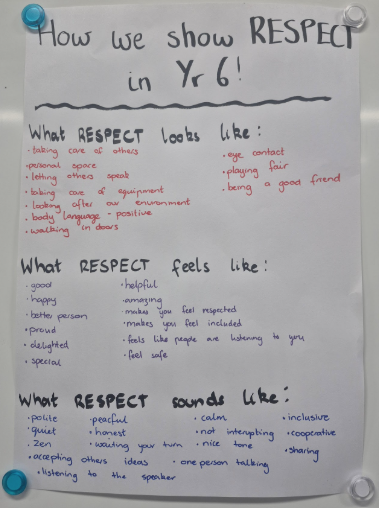 How we show RESPECT
in Yr 6!
What RESPECT looks like:
· taking care of others
· personal space
· letting others speak
· taking care of equipment
· looking after our environment
· body language - positive
· walking in doors
· eye contact
· playing fair
· being a good friend
What RESPECT feels like:
· good
· happy
· better person
· proud
· delighted
· special
· helpful
· amazing
· makes you feel respected
· makes you feel included
· feels like people are listening to you
· feel safe
What RESPECT sounds like:
· polite
· quiet
· zen
· accepting others ideas
· listening to the speaker
· peaceful
· honest
· waiting your turn
· one person talking
· calm
· not interupting
· nice tone
· inclusive
· cooperative
· sharing